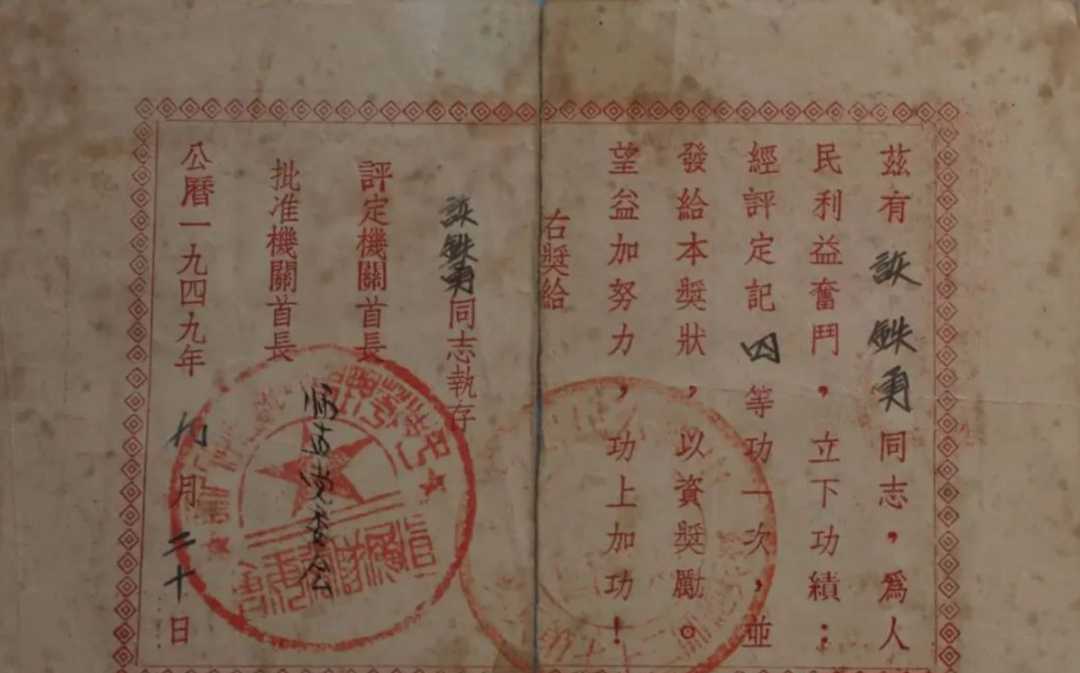 茲有 訴鉄勇 同志，爲人
民利益奮鬥，立下功績；
經評定記四等功一次，並
發給本獎狀，以資獎勵。
望益加努力，功上加功！
右獎給
訴鉄勇同志執存
評定機關首長
批准機關首長
党委会
公曆一九四九年 九月二十日